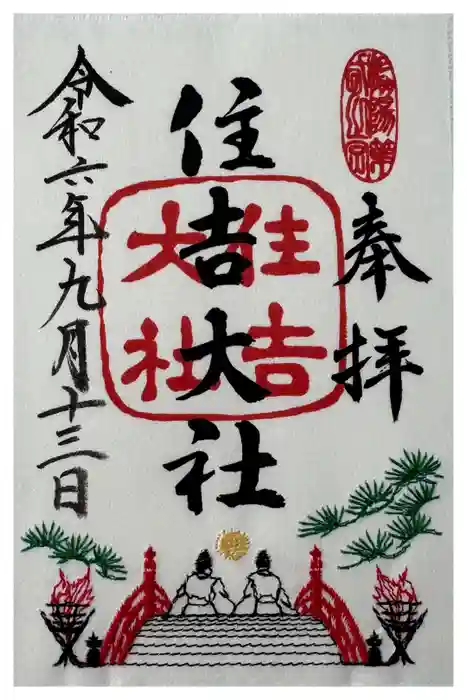 奉拝
住吉大社
住吉
大社
令和六年九月十三日